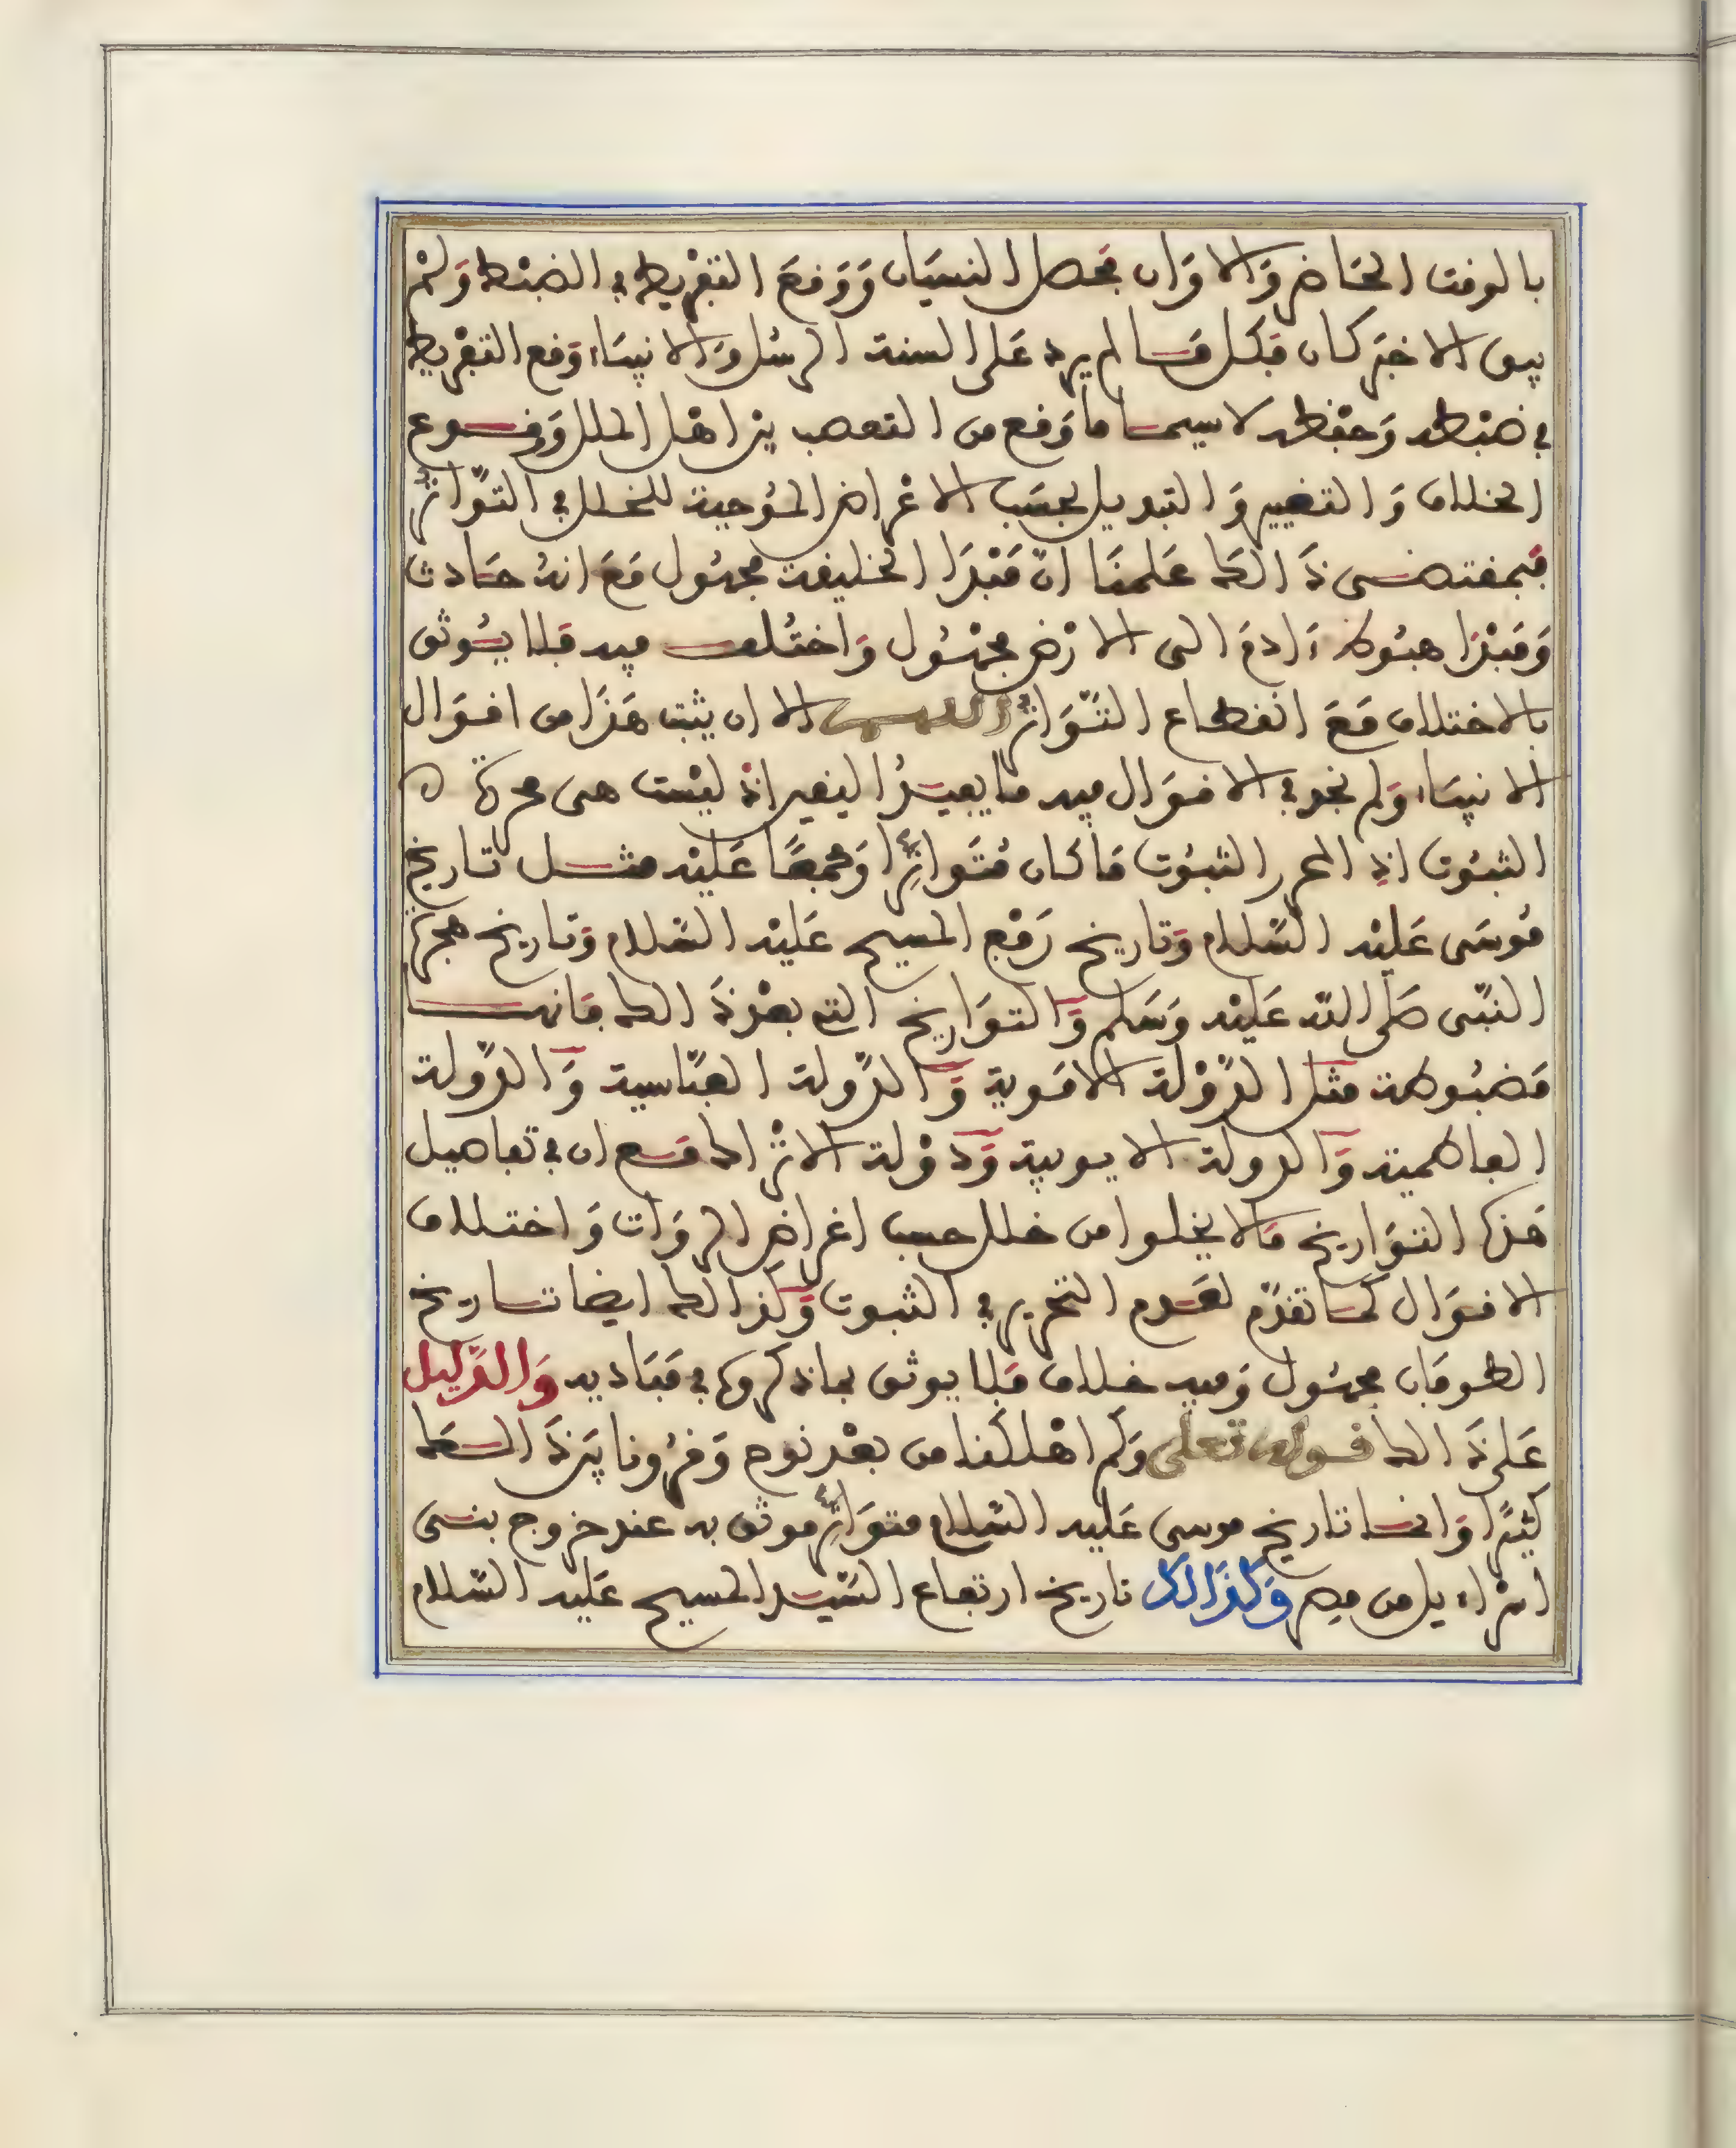 بالوقت الحَاضر وَالاوَان فحصل النسيَان وَوَقعَ التفْريط في الضبْط وَلمْ
يبق الا خبَر كان فكل مَا لم يرد عَلى السنة الرسُل وَالانبيَاء وَقع التفْريط
في ضبْطه وَحفْظه لاسيما ما وَقع من التعصب بين اهْل الملل وَوقوع
الخلاف وَالتغيير وَالتبديل بحسَب الاغراض الموُجبة للخلل في التوّاتر
فبمقتضى ذَالك عَلمنَا انّ مَبْدَا الخليقة مجهُول مَعَ انهُ حَادث
وَمَبْدَا هبُوط ءَادمَ الى الارْض مجهُول وَاختُلف فيه فلا يُوثق
بالاختلاف مَعَ انقطاع التّوَاتر اللهم الا ان يثبت هَذَا من اقوَال
الانبيَاء وَلم نجد في الاقوَال فيه ما يفيدُ اليقين اذ ليْست هى محررة
الثبُوت اذِ المحرر الثبُوت مَا كان مُتَواترا وَمجمعًا عَليْه مثل تاريخ
مُوسَى عَليْه السّلام وَتاريخ رَفْع المسيح عَليْه السّلام وَتاريخ هجرة
النبّى صَلى اللّه عَليْه وَسَلم وَالتوَاريخ التى بعْد ذَالك فانها
مَضبُوطة مثل الدّوْلة الامَوية وَالدّولة العبّاسية وَالدّولة
الفاطمية وَالدولة الايوبية وَدَوْلة الاتْراك مَع ان في تفاصيل
هَذه التوَاريخ مَالا يخلوا من خلل حسب اغراض الروَات وَاختلاف
الاقوَال كما تقدّم لعَدم التحرير في الثبوت وَكذالك ايضا تاريخ
الطوفَان مجهُول وَفيه خلاف فلا يوثق بما ذكروه في مَبَاديه وَالدّليل
عَلى ذَالك قوله تعلى وَكم اهْلكنا من بعْد نوح وَقرُونا بيَن ذَالكَ
كثيَرا وَانما تاريخ موسى عَليه السّلام متوَاتر موثق به عند خروج بنى
اسْراءيل من مصر وَكذَالك تاريخ ارتفاع السّيد المسيح عَليه السّلام